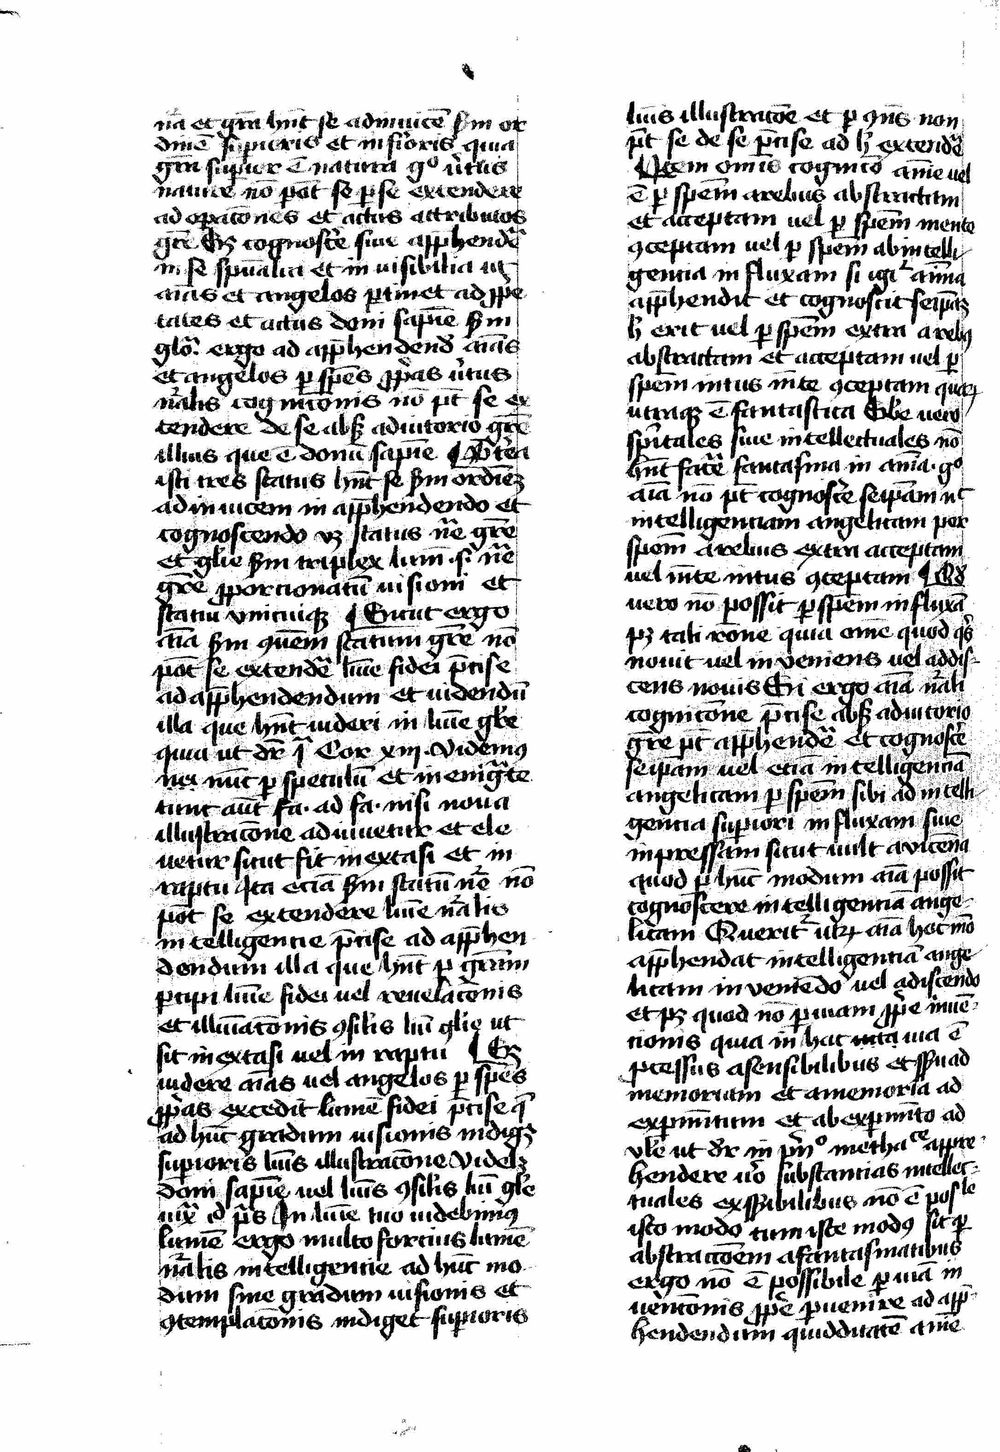 na et gra hnt se adinuice scdm or
dine supioris et inferioris quia
gra supior e natura g° utus
nature no pot se p se extendere
ad opacones et actus attributos
gre Sz cognosce siue apphende
in se spualia et inuisibilia ut
aias et angelos ptinet ad ppe
tates et actus doni sapie scdm
glo. ergo ad apphendend aias
et angelos p spes ppas utus
nalis cognicionis no pt se ex
tendere de se absz adiutorio gre
illius que e donu sapie ¶ Pterea
isti tres status hnt se scdm ordiez
adinuicem in apphendendo et
cognoscendo vz status ne gre
et glie scdm triplex lum .s. ne
gre pporcionatu uisioni et
statui vnicuiqz ¶ Sicut ergo
aia scdm quem statum gre no
pot se extende lume fidei pcise
ad apphendendum et uidendu
illa que hnt uideri in lume glie
quia ut dr i Cor xiij. Videmus
nos nuc p speculu et in enigmate
tunc aut fa. ad fa. nisi noua
illustracone adiuuetur et ele
uetur sicut fit in extasi et in
raptu Ita ecia scdm statu ne no
pot se extendere lume nalis
intelligentie pcise ad apphen
dendum illa que hnt p gram
pcipi lume fidei uel reuelaconis
et illuiaconis 9silis lui glie ut
sit in extasi uel in raptu ¶ Sz
uidere aias uel angelos p spes
ppas excedit lume fidei pcise q
ad hunc gradum uisionis indigz
supioris luis illustracone Videlz
doni sapie uel luis 9silis lui glie
iux id ps In lume tuo uidebimus
lumen ergo multo forcius lume
nalis intelligentie ad hunc mo
dum siue gradum uisionis et
9templaconis indiget supioris
luis illustracoe et p 9ns non
pt se de se pcise ad h extende
¶ Item omis cognicio anie uel
e p spem a rebus abstractam
et acceptam uel p spem mente
9ceptam uel p spem ab intelli
gencia influxam si igit anima
apphendit et cognoscit seipaz
h erit uel p spem extra a rebus
abstractam et acceptam uel p
spem intus in te 9ceptam quarz
utraqz e fantastica Sbe uero
spirtales siue intellectuales no
hnt facere fantasma in ania. g°
aia no pt cognosce seipam ut
intelligenciam angelicam per
spem a rebus extra acceptam
uel mte intus 9ceptam ¶ Qd
uero no possit p spem influxa
pz tali rone quia ome quod qs
nouit uel inueniens uel addis
cens nouit Si ergo aia nali
cognicone pcise absz adiutorio
gre pt apphende et cognosce
seipam uel ecia intelligencia
angelicam p spem sibi ad intelli
gencia supiori influxam siue
inpressam sicut uult auicena
quod p hunc modum aia possit
cognoscere intelligencia ange
licam Querit utrz aia hoc mo
apphendat intelligencia ange
licam inueniedo uel adiscendo
et pz quod no p uiam ppe inuen
tionis quia in hac uita uia e
pcessus a sensibilibus et sensu ad
memoriam et a memoria ad
experimtum et ab experimto ad
vle ut dr in pmo methace appre
hendere uero substancias intellec
tuales ex sensibilibus no e posle
isto modo cum iste modus sit p
abstraccoem a fantasmatibus
ergo no e possibile p uia in
uenconis ppe puenire ad app
hendendum quidditate anie